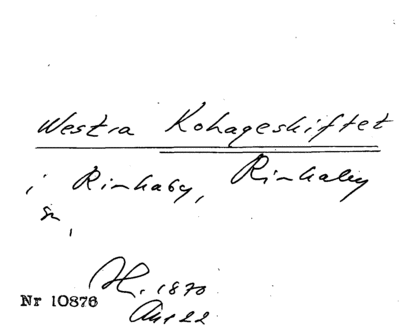 Westra Kohageskiftet
i Rinkaby, Rinkaby
sn,
H. 1870
Nr 10876
Aug 22